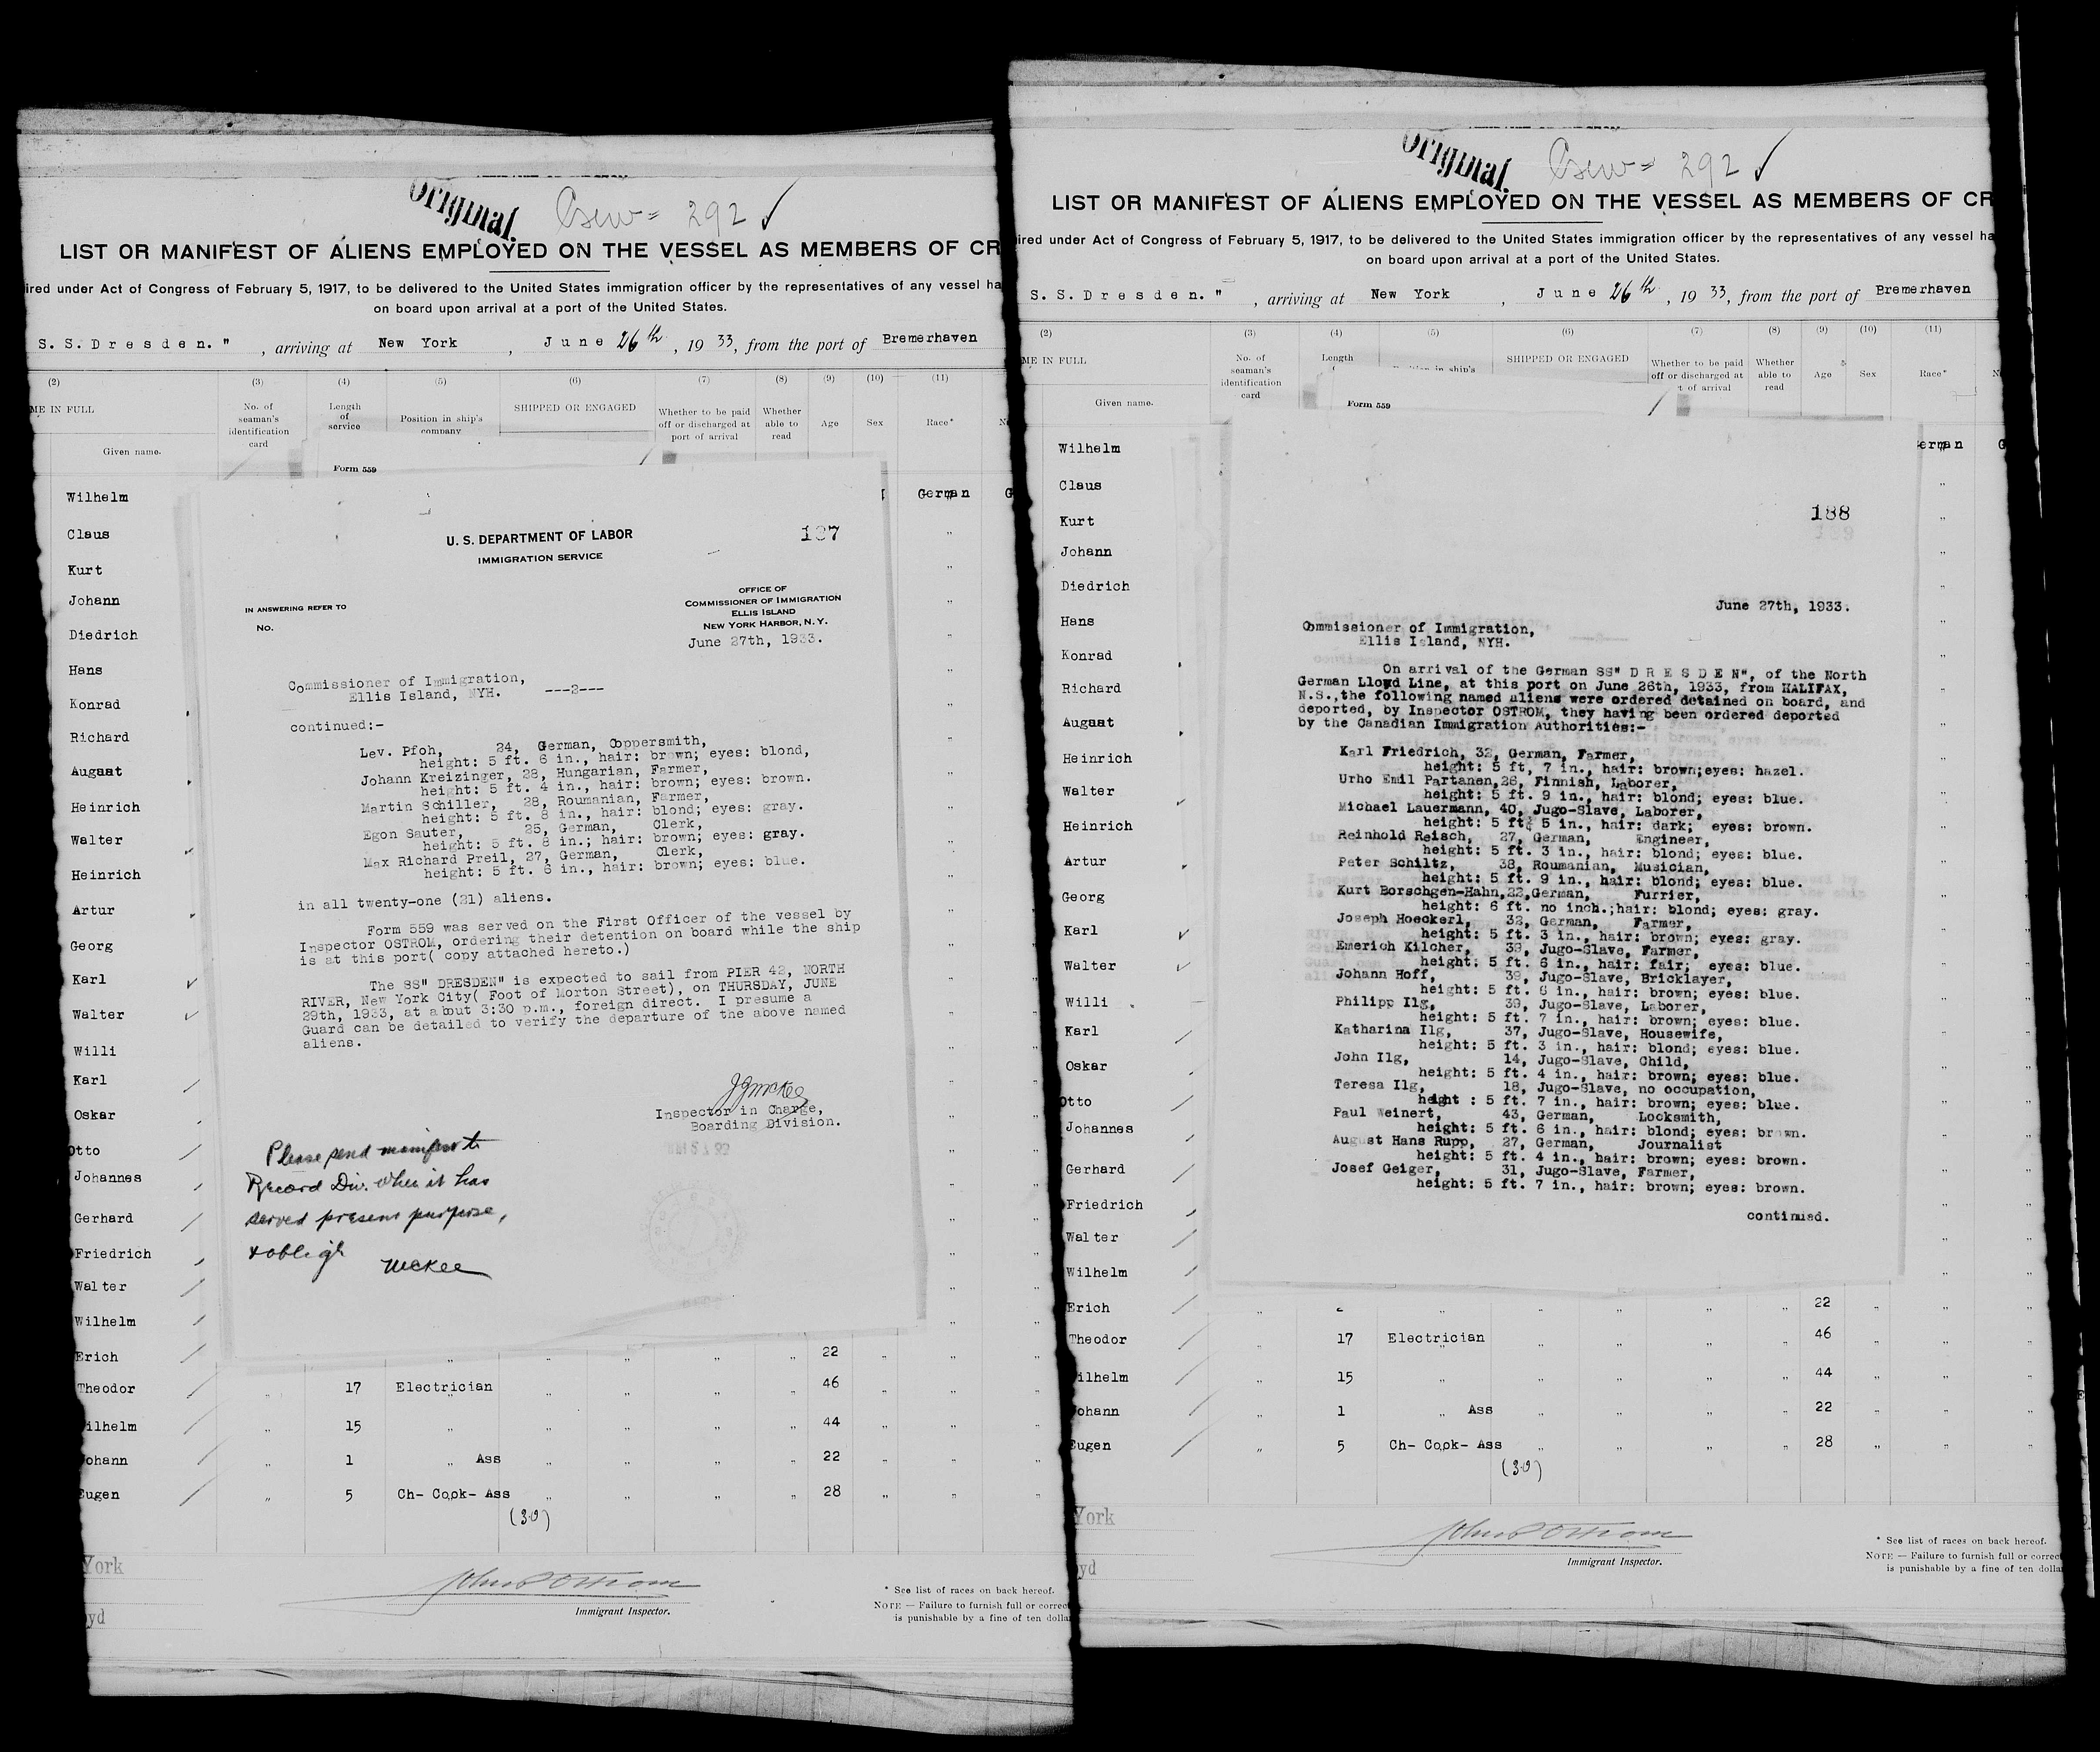 Original.
Crew = 292 ✓
LIST OR MANIFEST OF ALIENS EMPLOYED ON THE VESSEL AS MEMBERS OF CR
ired under Act of Congress of February 5, 1917, to be delivered to the United States immigration officer by the representatives of any vessel ha
on board upon arrival at a port of the United States.
S. S. D r e s d e n. " , arriving at New York , J u n e 26 th , 19 33, from the port of Bremerhaven
(2) (3) (4) (5) (6) (7) (8) (9) (10) (11)
ME IN FULL
Given name.
No. of seaman's identification card
Length of service
Position in ship's company
SHIPPED OR ENGAGED
Whether to be paid off or discharged at port of arrival
Whether able to read
Age
Sex
Race*
Form 559
Wilhelm German G
Claus "
Kurt "
Johann "
Diedrich "
Hans "
Konrad "
Richard "
August "
Heinrich "
Walter "
Heinrich "
Artur "
Georg "
Karl "
Walter "
Willi "
Karl "
Oskar "
Otto "
Johannes "
Gerhard "
Friedrich "
Walter "
Wilhelm "
Erich " " " " " 22 " "
Theodor " 17 Electrician " " " " 46 " "
ilhelm " 15 " " " " " 44 " "
ohann " 1 " Ass " " " " 22 " "
Eugen " 5 Ch- Cook- Ass " " " " 28 " "
(30)
York
yd
John P Ostrom
Immigrant Inspector.
* See list of races on back hereof.
NOTE — Failure to furnish full or correct
is punishable by a fine of ten dolla
U. S. DEPARTMENT OF LABOR
IMMIGRATION SERVICE
187
IN ANSWERING REFER TO
No.
OFFICE OF
COMMISSIONER OF IMMIGRATION
ELLIS ISLAND
NEW YORK HARBOR, N. Y.
June 27th, 1933.
Commissioner of Immigration,
Ellis Island, NYH. ---2---
continued:-
Lev. Pfoh, 24, German, Coppersmith,
height: 5 ft. 6 in., hair: brown; eyes: blond,
Johann Kreizinger, 28, Hungarian, Farmer,
height: 5 ft. 4 in., hair: brown; eyes: brown.
Martin Schiller, 28, Roumanian, Farmer,
height: 5 ft. 8 in., hair: blond; eyes: gray.
Egon Sauter, 25, German, Clerk,
height: 5 ft. 8 in.; hair: brown; eyes: gray.
Max Richard Preil, 27, German, Clerk,
height: 5 ft. 6 in., hair: brown; eyes: blue.
in all twenty-one (21) aliens.
Form 559 was served on the First Officer of the vessel by
Inspector OSTROM, ordering their detention on board while the ship
is at this port( copy attached hereto.)
The SS" DRESDEN" is expected to sail from PIER 42, NORTH
RIVER, New York City( Foot of Morton Street), on THURSDAY, JUNE
29th, 1933, at about 3:30 p.m., foreign direct. I presume a
Guard can be detailed to verify the departure of the above named
aliens.
JGMcKee
Inspector in Charge,
Boarding Division.
Please send manifest to
Record Div. when it has
served present purpose,
& oblige
McKee
Original.
Crew = 292 ✓
LIST OR MANIFEST OF ALIENS EMPLOYED ON THE VESSEL AS MEMBERS OF CR
ired under Act of Congress of February 5, 1917, to be delivered to the United States immigration officer by the representatives of any vessel ha
on board upon arrival at a port of the United States.
S. S. D r e s d e n. " , arriving at New York , J u n e 26 th , 19 33, from the port of Bremerhaven
(2) (3) (4) (5) (6) (7) (8) (9) (10) (11)
ME IN FULL
Given name.
No. of seaman's identification card
Length
SHIPPED OR ENGAGED
Whether to be paid off or discharged at port of arrival
Whether able to read
Age
Sex
Race*
Form 559
Wilhelm erman G
Claus "
Kurt "
Johann
Diedrich
Hans
Konrad
Richard
August
Heinrich
Walter
Heinrich
Artur
Georg
Karl
Walter
Willi
Karl
Oskar
Otto
Johannes
Gerhard
Friedrich
Walter
Wilhelm
Erich 22
Theodor 17 Electrician 46
ilhelm 15 " 44
ohann 1 " Ass 22
Eugen 5 Ch- Cook- Ass 28
(30)
York
yd
John P Ostrom
Immigrant Inspector.
* See list of races on back hereof.
NOTE — Failure to furnish full or correct
is punishable by a fine of ten dolla
188
June 27th, 1933.
Commissioner of Immigration,
Ellis Island, NYH.
On arrival of the German SS" D R E S D E N", of the North
German Lloyd Line, at this port on June 26th, 1933, from HALIFAX,
N.S.,the following named aliens were ordered detained on board, and
deported, by Inspector OSTROM, they having been ordered deported
by the Canadian Immigration Authorities:-
Karl Friedrich, 32, German, Farmer,
height: 5 ft, 7 in., hair: brown;eyes: hazel.
Urho Emil Partanen,26, Finnish, Laborer,
height: 5 ft. 9 in., hair: blond; eyes: blue.
Michael Lauermann, 40, Jugo-Slave, Laborer,
height: 5 ft; 5 in., hair: dark; eyes: brown.
Reinhold Reisch, 27, German, Engineer,
height: 5 ft. 3 in., hair: blond; eyes: blue.
Peter Schiltz, 38, Roumanian, Musician,
height: 5 ft. 9 in., hair: blond; eyes: blue.
Kurt Borschgen-Hahn,22,German, Furrier,
height: 6 ft. no inch.;hair: blond; eyes: gray.
Joseph Hoeckerl, 32, German, Farmer,
height: 5 ft. 3 in., hair: brown; eyes: gray.
Emerich Kilcher, 39, Jugo-Slave, Farmer,
height: 5 ft. 6 in., hair: fair; eyes: blue.
Johann Hoff, 39, Jugo-Slave, Bricklayer,
height: 5 ft. 6 in., hair: brown; eyes: blue.
Philipp Ilg, 39, Jugo-Slave, Laborer,
height: 5 ft. 7 in., hair: brown; eyes: blue.
Katharina Ilg, 37, Jugo-Slave, Housewife,
height: 5 ft. 3 in., hair: blond; eyes: blue.
John Ilg, 14, Jugo-Slave, Child,
height: 5 ft. 4 in., hair: brown; eyes: blue.
Teresa Ilg, 18, Jugo-Slave, no occupation,
height : 5 ft. 7 in., hair: brown; eyes: blue.
Paul Weinert, 43, German, Locksmith,
height: 5 ft. 6 in., hair: blond; eyes: brown.
August Hans Rupp, 27, German, Journalist
height: 5 ft. 4 in., hair: brown; eyes: brown.
Josef Geiger, 31, Jugo-Slave, Farmer,
height: 5 ft. 7 in., hair: brown; eyes: brown.
continued.